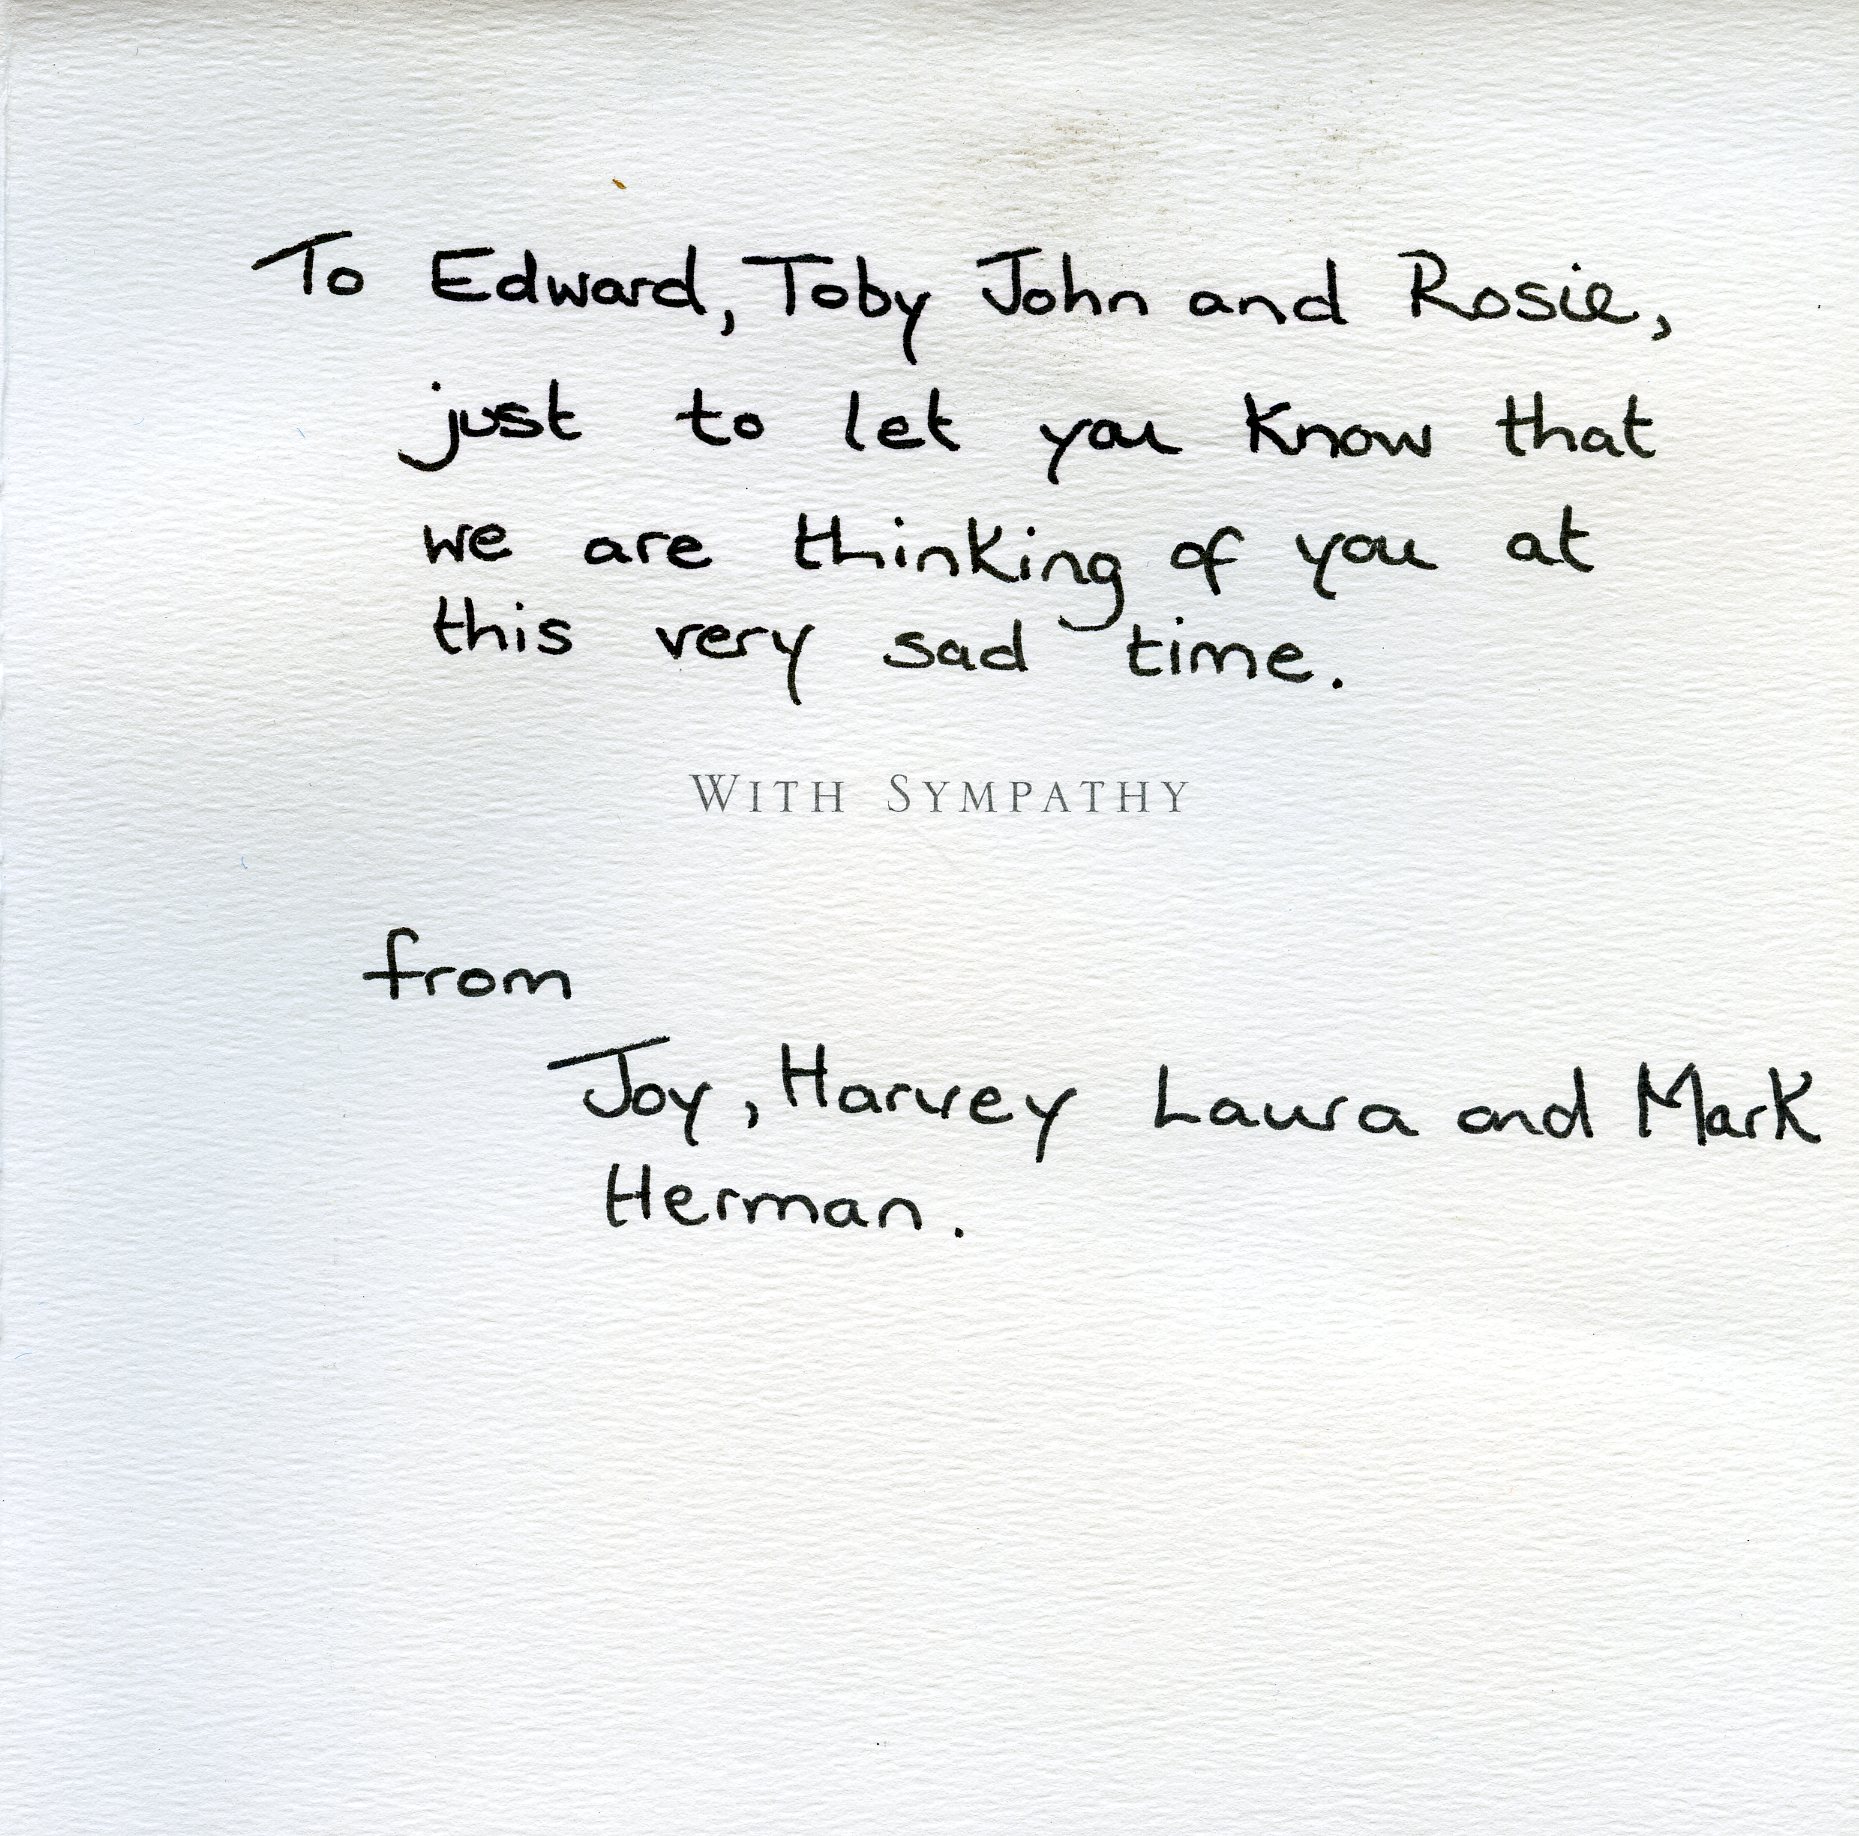 To Edward, Toby John and Rosie,
just to let you know that
we are thinking of you at
this very sad time.
WITH SYMPATHY
from
Joy, Harvey Laura and Mark
Herman.